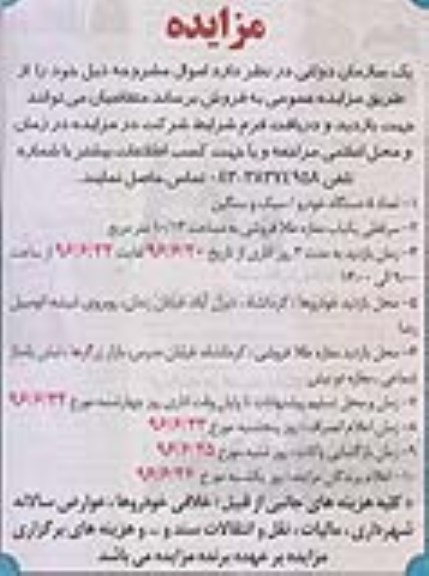 مزایده
یک سازمان دولتی در نظر دارد اموال مشروحه ذیل خود را از
طریق مزایده عمومی به فروش برساند متقاضیان می توانند
جهت بازدید و دریافت فرم شرایط شرکت در مزایده در زمان
و محل اعلامی مراجعه و یا جهت کسب اطلاعات بیشتر با شماره
تلفن تماس حاصل نمایند.
۱- تعداد دستگاه خودرو سبک و سنگین
۲- سرقفلی یکباب مغازه طلا فروشی به مساحت ۱۰/۱۳ متر مربع
۳- زمان بازدید به مدت ۳ روز اداری از تاریخ ۹۶/۶/۲۰ لغایت ۹۶/۶/۲۲ از ساعت
۹:۰۰ الی ۱۳:۰۰
۵- محل بازدید خودروها : کرمانشاه ، خیابان روبروی
رضا
۶- محل بازدید مغازه طلا فروشی : کرمانشاه خیابان مدرس بازار زرگرها ، نبش پاساژ
مغازه دو نبش
۷- زمان و محل تسلیم پیشنهادات تا پایان وقت اداری روز چهارشنبه مورخ
۸- زمان اعلام انصراف : روز پنجشنبه مورخ ۹۶/۶/۲۳
۹- زمان بازگشایی پاکات : روز شنبه مورخ ۹۶/۶/۲۵
۱۰- اعلام برندگان مزایده : روز یکشنبه مورخ ۹۶/۶/۲۶
کلیه هزینه های جانبی از قبیل : خلافی خودروها ، عوارض سالانه
شهرداری ، مالیات ، نقل و انتقالات سند و ... و هزینه های برگزاری
مزایده بر عهده برنده مزایده می باشد